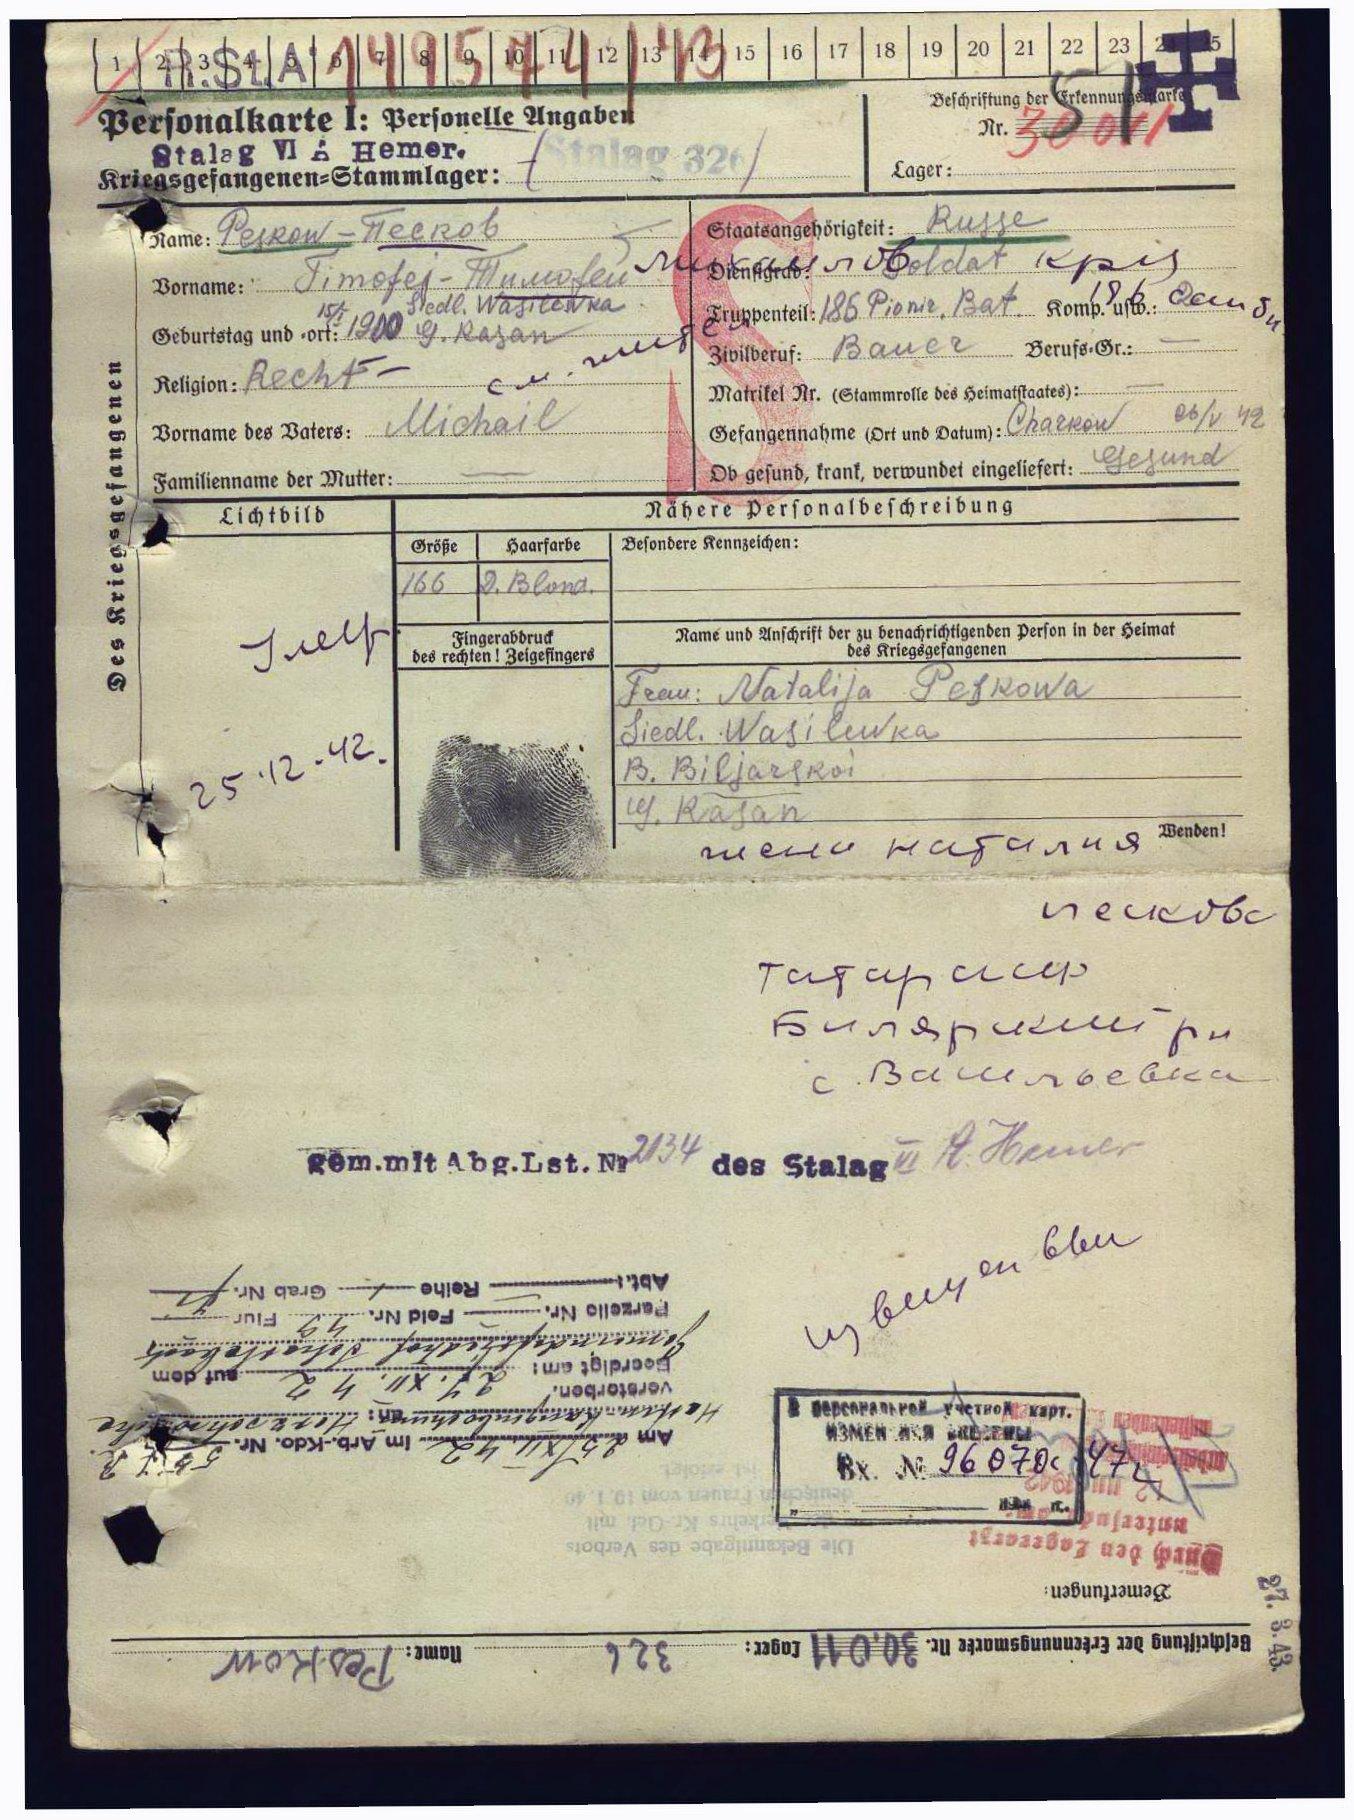 1 2 3 4 5 6 7 8 9 10 11 12 13 14 15 16 17 18 19 20 21 22 23 24 25
R.St.A. 149574 / 43
Personalkarte I: Personelle Angaben
Stalag VI A Hemer.
(Stalag 326)
Kriegsgefangenen=Stammlager:
Beschriftung der Erkennungsmarke
Nr. 30 011
Lager:
Des Kriegsgefangenen
Name: Peskow – Песков
Vorname: Timofej – Тимофей
15/5 Siedl. Wasilewka
Geburtstag und -ort: 1900 G. Kasan
Religion: Recht –
Vorname des Vaters: Michail
Familienname der Mutter: —
Staatsangehörigkeit: Russe
Dienstgrad: Soldat
Truppenteil: 186 Pionir. Bat. Komp. usw.: 186
Zivilberuf: Bauer Berufs-Gr.: —
Matrikel Nr. (Stammrolle des Heimatstaates): —
Gefangennahme (Ort und Datum): Charkow 26/V 42
Ob gesund, krank, verwundet eingeliefert: Gesund
Lichtbild
Nähere Personalbeschreibung
Größe Haarfarbe Besondere Kennzeichen:
166 D. Blond.
Fingerabdruck
des rechten! Zeigefingers
Name und Anschrift der zu benachrichtigenden Person in der Heimat
des Kriegsgefangenen
Frau: Natalija Peskowa
Siedl. Wasilewka
B. Biljarskoi
G. Kasan
Wenden!
умер
25.12.42.
жена наталия
пескова
Татарская
Билярский рн
с. Васильевка
gem.mit Abg.Lst. Nr 2134 des Stalag VI A. Hemer
извещен
В персональной учетной карт.
ИЗМЕНЕНИЯ ВНЕСЕНЫ
Вх. № 96070с 47г
27. 3. 43.
Beschriftung der Erkennungsmarke Nr. 30.011 Lager: 326 Name: Peskow
Bemerkungen:
Durch den Lagerarzt
untersucht
Die Bekanntgabe des Verbots
des Verkehrs Kr.-Gef. mit
deutschen Frauen vom 10.1.40
ist erfolgt.
Am 25/XII. 42 im Arb.-Kdo. Nr. 55 R.
an:
verstorben.
Beerdigt am: 27. XII. 42 auf dem
Parzelle Nr. Feld Nr. 49 Flur
Abt.: Reihe Grab Nr.